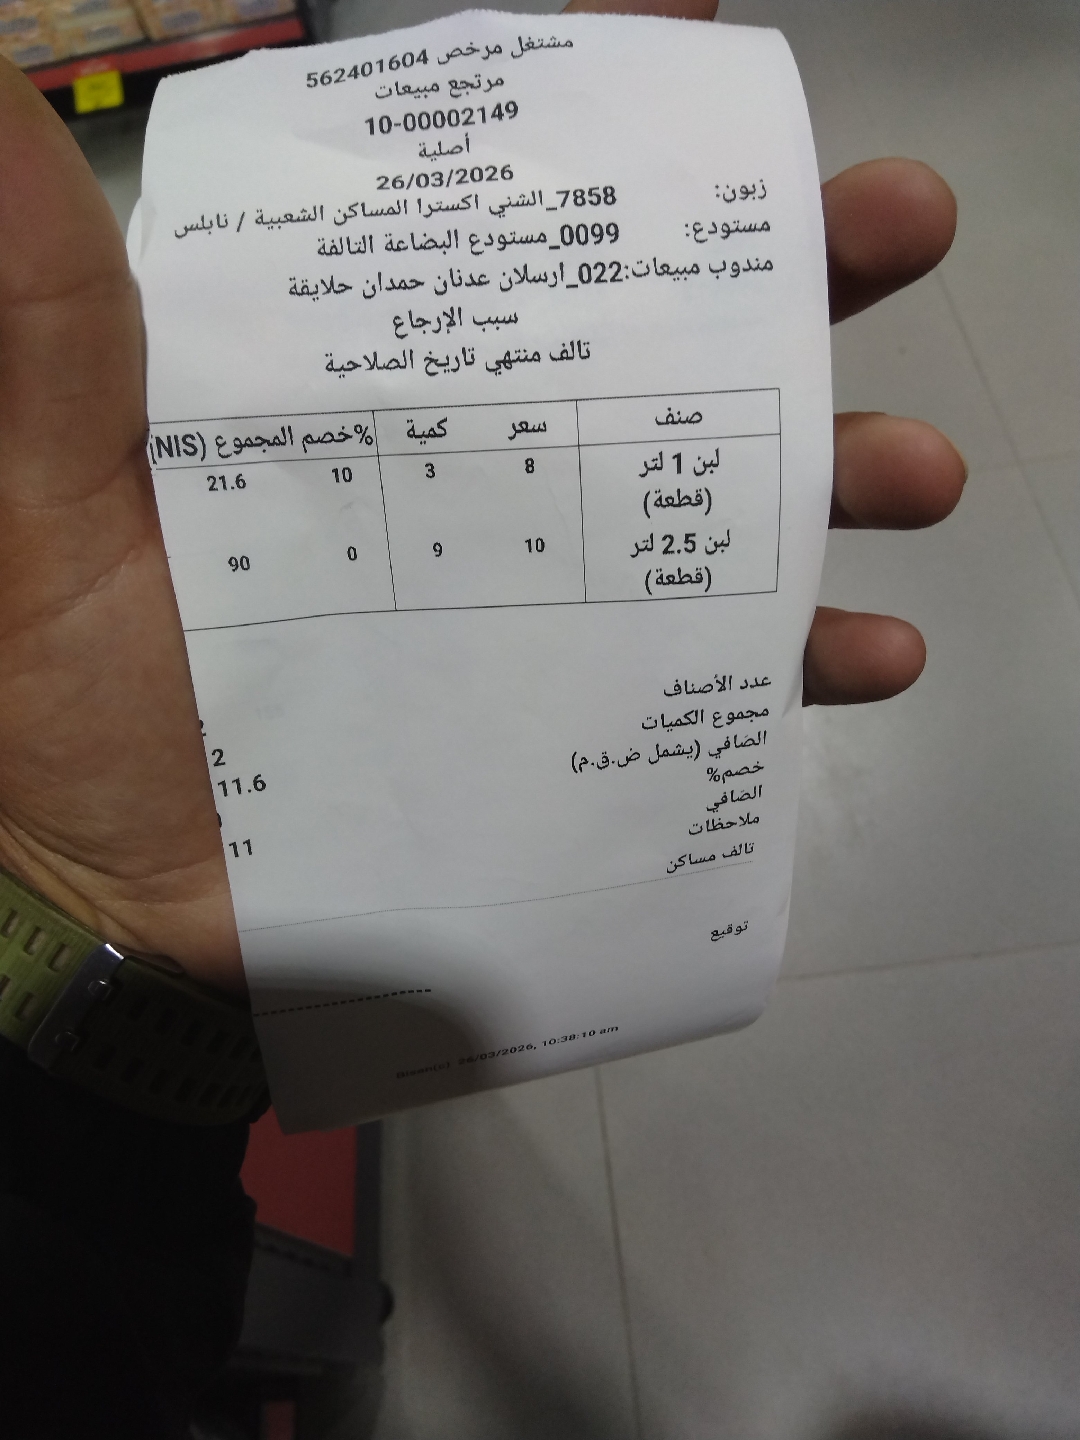 مشتغل مرخص 562401604
مرتجع مبيعات
10-00002149
أصلية
26/03/2026
زبون: 7858_الشني اكسترا المساكن الشعبية / نابلس
مستودع: 0099_مستودع البضاعة التالفة
مندوب مبيعات:022_ارسلان عدنان حمدان حلايقة
سبب الإرجاع
تالف منتهي تاريخ الصلاحية
صنف سعر كمية خصم% المجموع (NIS)
لبن 1 لتر 8 3 10 21.6
(قطعة)
لبن 2.5 لتر 10 9 0 90
(قطعة)
عدد الأصناف
مجموع الكميات 2
الصافي (يشمل ض.ق.م) 11.6
خصم%
الصافي 11
ملاحظات
تالف مساكن
توقيع
26/03/2026, 10:38:10 am